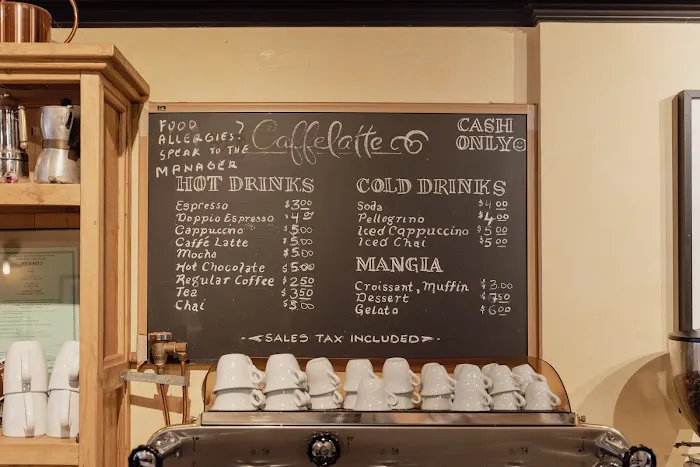 FOOD
ALLERGIES?
SPEAK TO THE
MANAGER
Caffelatte co
CASH
ONLY
HOT DRINKS
Espresso $3.00
Doppio Espresso $4.00
Cappuccino $5.00
Caffé Latte $5.00
Mocha $5.00
Hot Chocolate $5.00
Regular Coffee $2.50
Tea $3.50
Chai $5.00
COLD DRINKS
Soda $4.00
Pellegrino $4.00
Iced Cappuccino $5.00
Iced Chai $5.00
MANGIA
Croissant, Muffin $3.00
Dessert $7.50
Gelato $6.00
SALES TAX INCLUDED